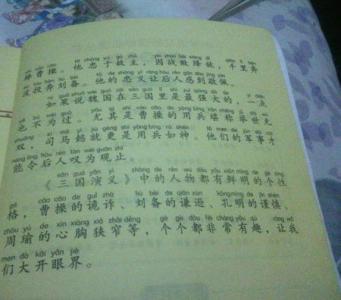 择曹操。他忠于故主，因战败降敌，千里奔
没投奔刘备。他的忠义让后人感到敬佩。
如果说魏国在三国里是最强大的，一点
也不为过。尤其是曹操的用兵堪称举世无
双，司马懿就更是用兵如神。他们的军事才
能令后人叹为观止。
《三国演义》中的人物都有鲜明的个性
格，曹操的诡诈、刘备的谦逊、孔明的谨慎、
周瑜的心胸狭窄等，个个都非常有趣，让我
们大开眼界。